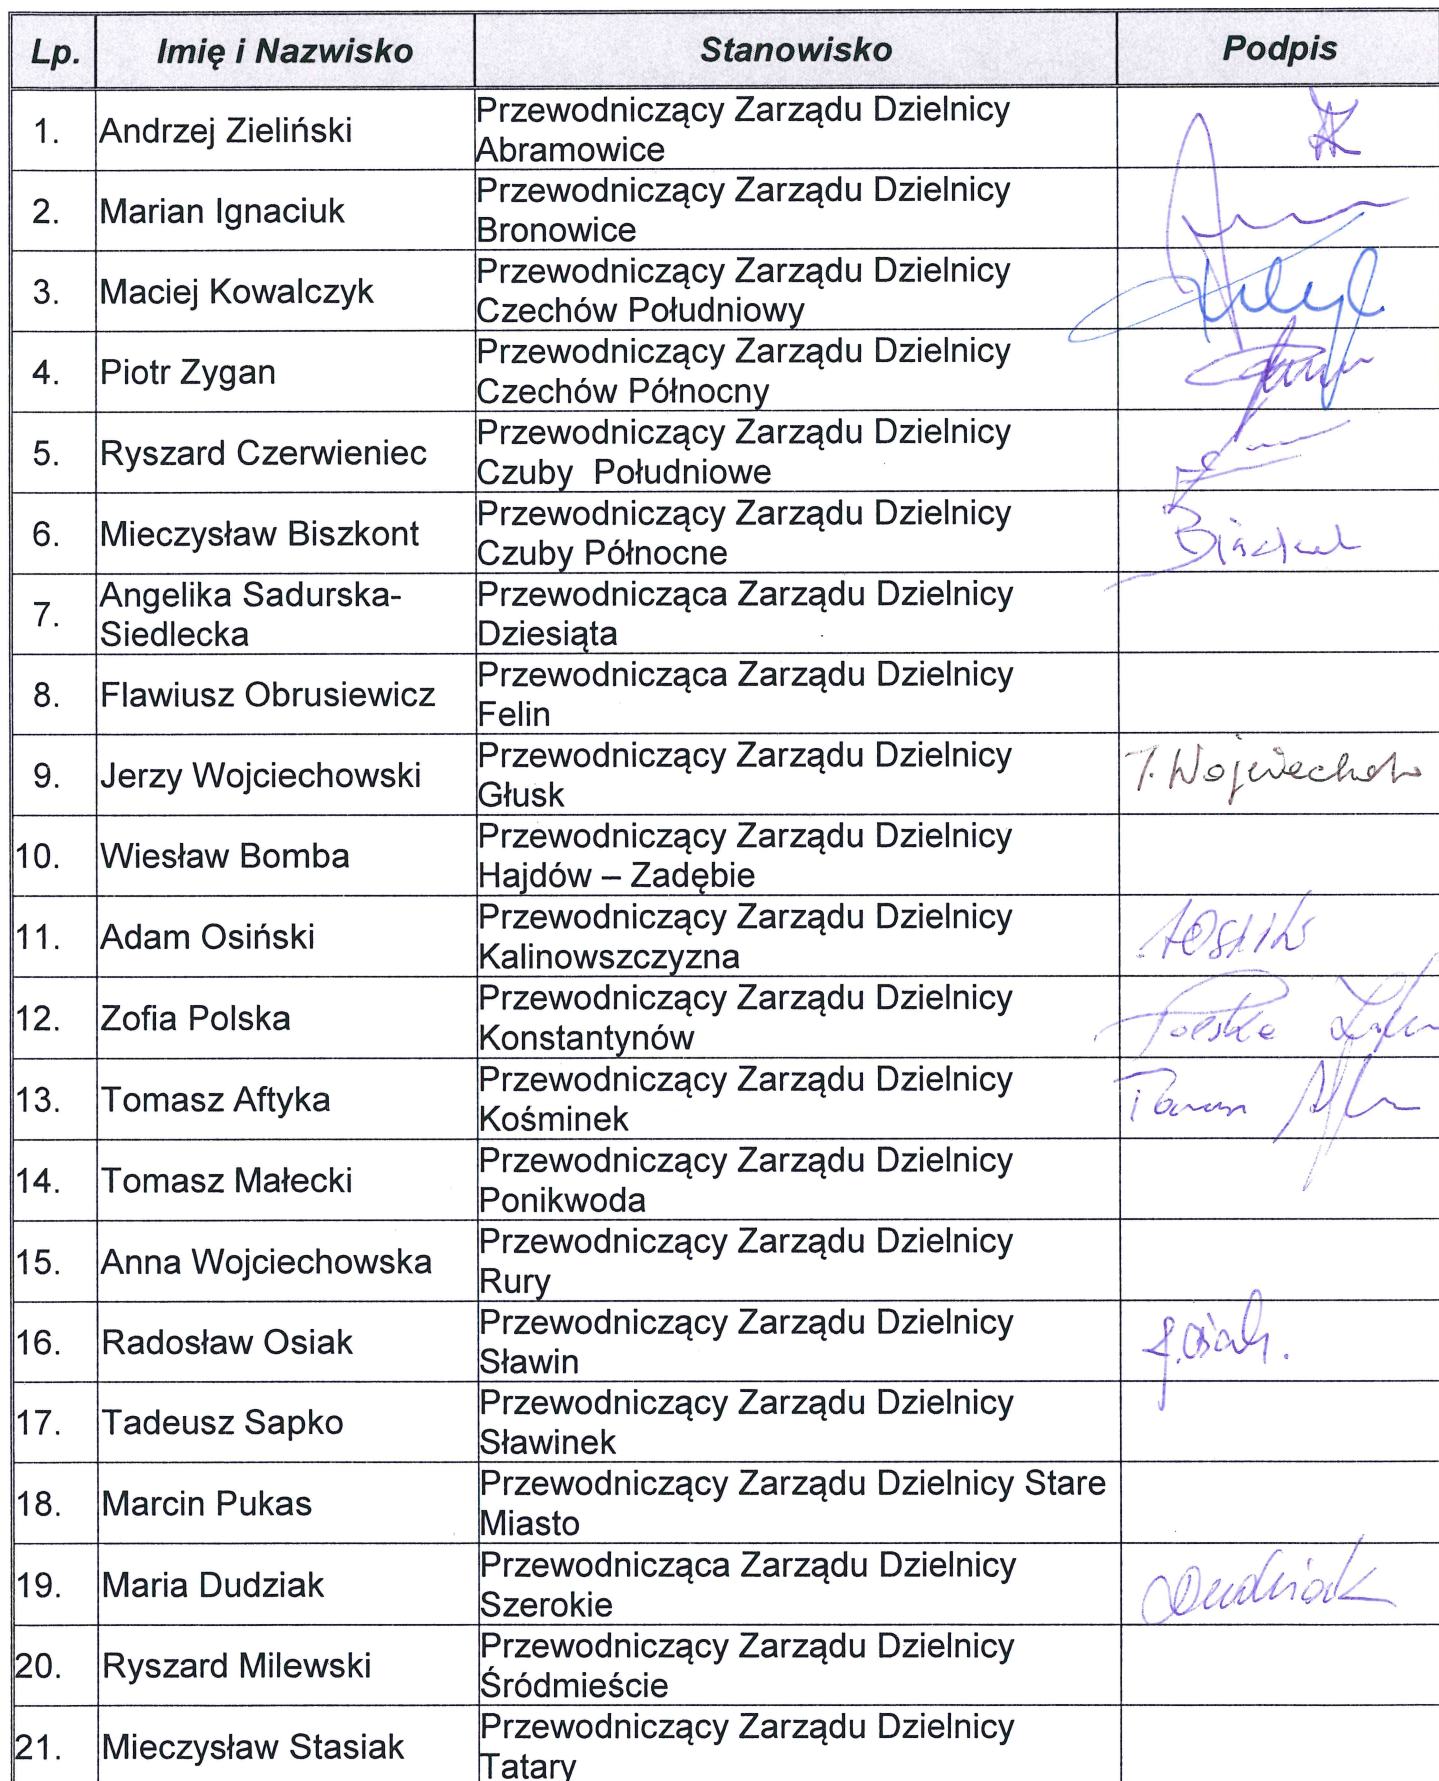 Lp. Imię i Nazwisko Stanowisko Podpis
1. Andrzej Zieliński Przewodniczący Zarządu Dzielnicy
Abramowice
2. Marian Ignaciuk Przewodniczący Zarządu Dzielnicy
Bronowice
3. Maciej Kowalczyk Przewodniczący Zarządu Dzielnicy
Czechów Południowy
4. Piotr Zygan Przewodniczący Zarządu Dzielnicy
Czechów Północny
5. Ryszard Czerwieniec Przewodniczący Zarządu Dzielnicy
Czuby Południowe
6. Mieczysław Biszkont Przewodniczący Zarządu Dzielnicy
Czuby Północne
7. Angelika Sadurska- Przewodnicząca Zarządu Dzielnicy
Siedlecka Dziesiąta
8. Flawiusz Obrusiewicz Przewodnicząca Zarządu Dzielnicy
Felin
9. Jerzy Wojciechowski Przewodniczący Zarządu Dzielnicy
Głusk
10. Wiesław Bomba Przewodniczący Zarządu Dzielnicy
Hajdów – Zadębie
11. Adam Osiński Przewodniczący Zarządu Dzielnicy
Kalinowszczyzna
12. Zofia Polska Przewodniczący Zarządu Dzielnicy
Konstantynów
13. Tomasz Aftyka Przewodniczący Zarządu Dzielnicy
Kośminek
14. Tomasz Małecki Przewodniczący Zarządu Dzielnicy
Ponikwoda
15. Anna Wojciechowska Przewodniczący Zarządu Dzielnicy
Rury
16. Radosław Osiak Przewodniczący Zarządu Dzielnicy R. Osiak.
Sławin
17. Tadeusz Sapko Przewodniczący Zarządu Dzielnicy
Sławinek
18. Marcin Pukas Przewodniczący Zarządu Dzielnicy Stare
Miasto
19. Maria Dudziak Przewodnicząca Zarządu Dzielnicy Dudziak
Szerokie
20. Ryszard Milewski Przewodniczący Zarządu Dzielnicy
Śródmieście
21. Mieczysław Stasiak Przewodniczący Zarządu Dzielnicy
Tatary